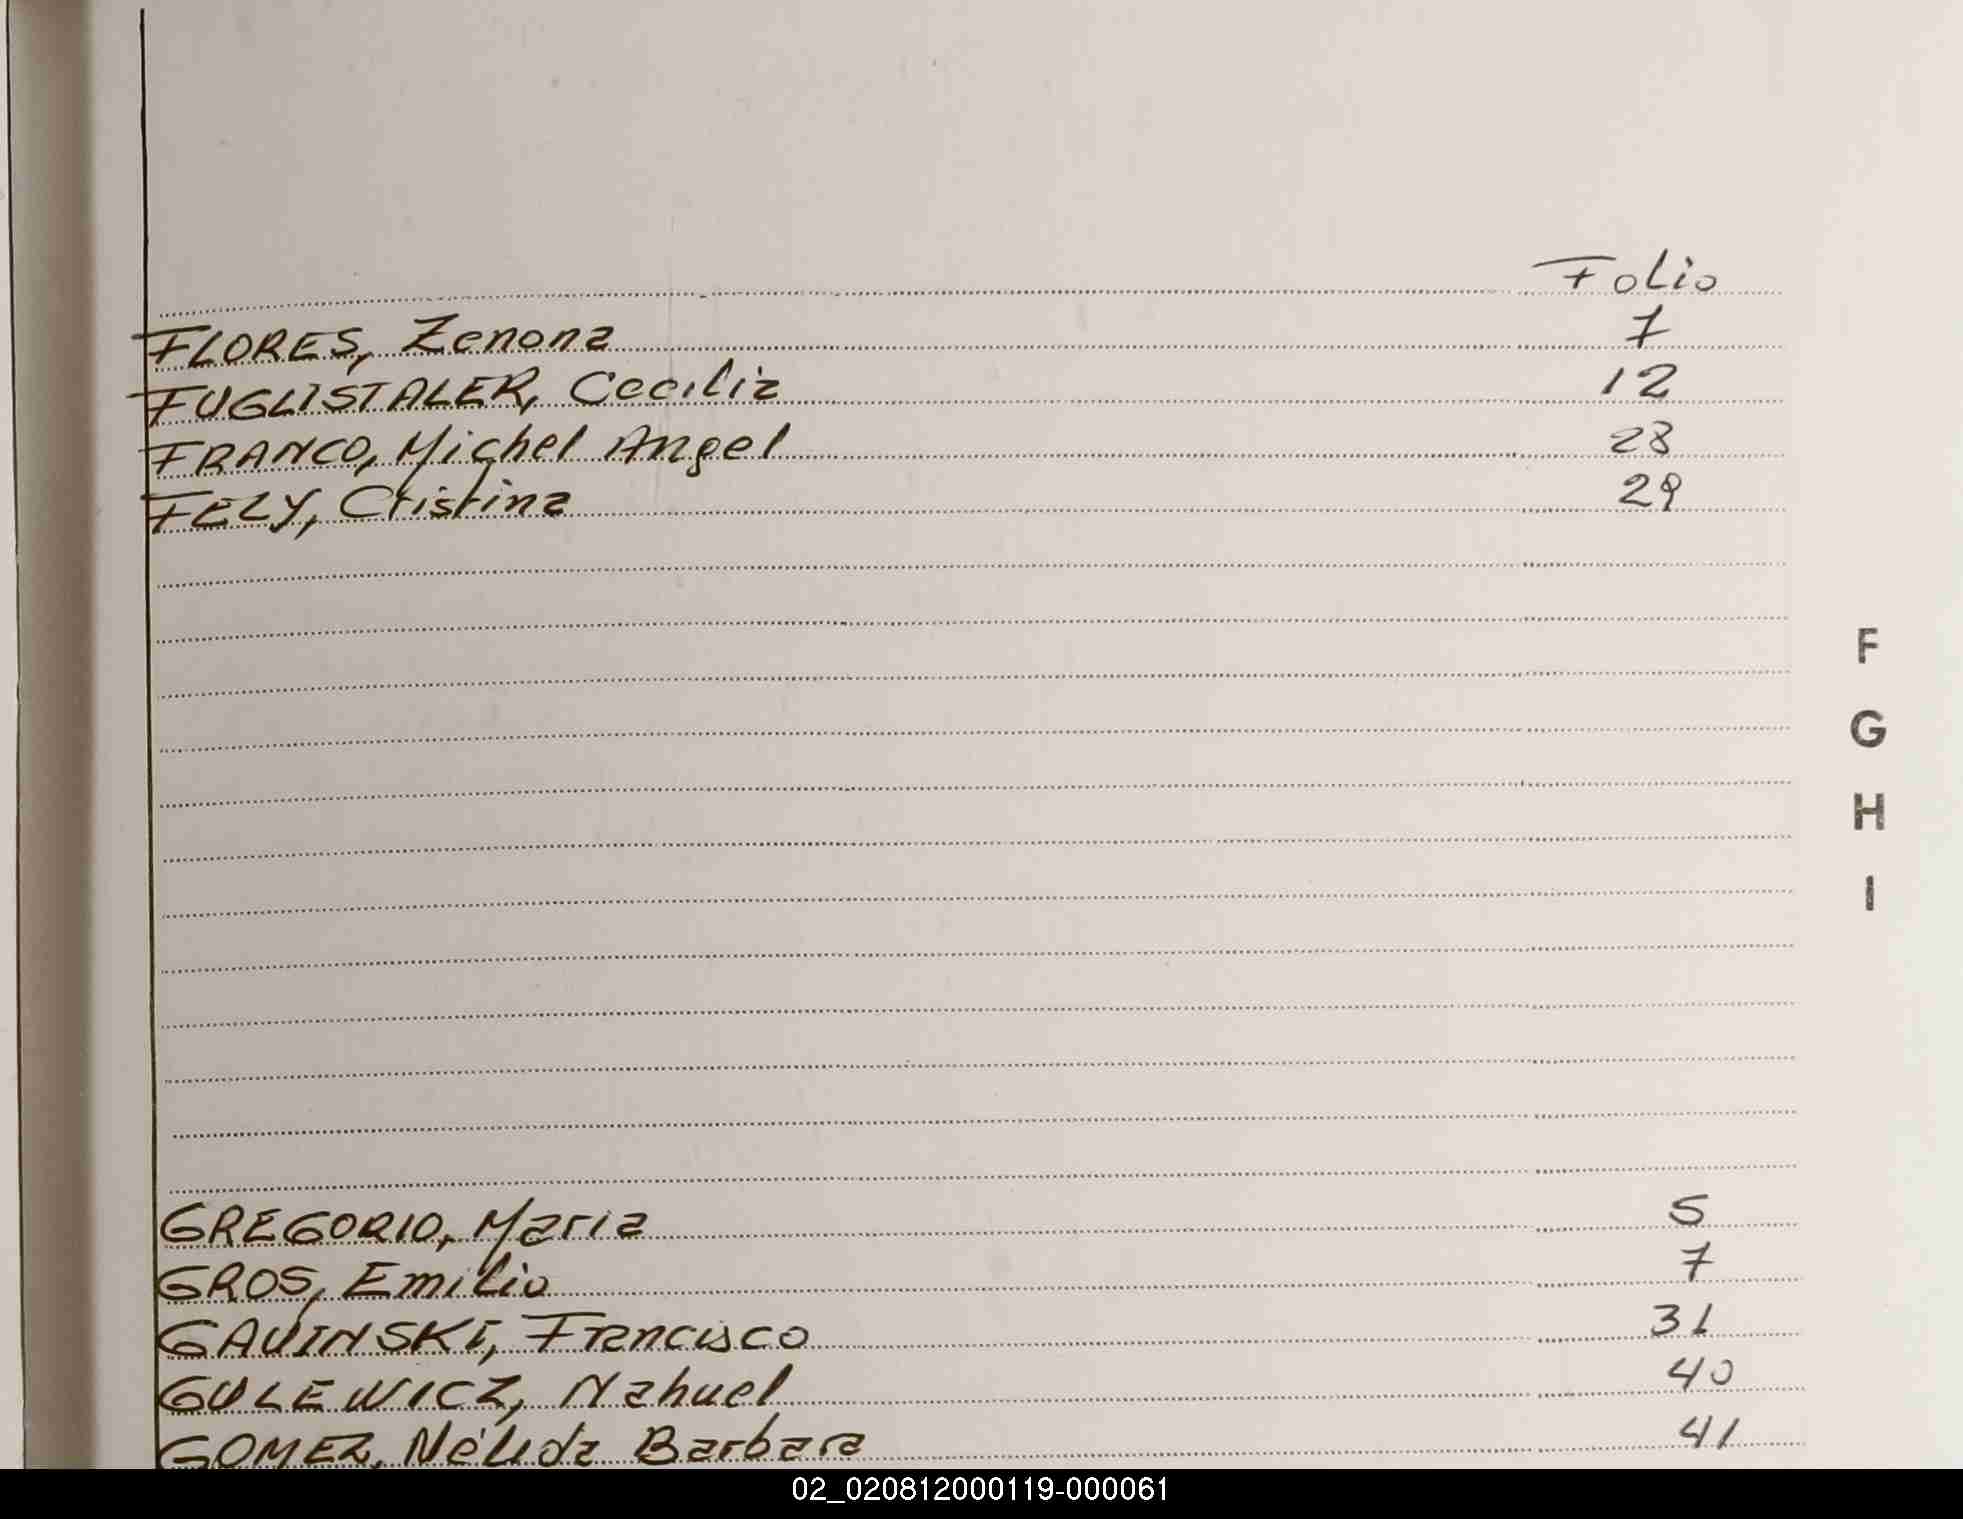 Folio
FLORES, Zenona 7
FUGLISTALER, Cecilia 12
FRANCO, Michel Angel 28
FEZY, Cristina 29
F
G
H
I
GREGORIO, Maria 5
GROS, Emilio 7
GAVINSKI, Francisco 31
GULEWICZ, Nahuel 40
GOMEZ, Nélida Barbara 41
02_020812000119-000061